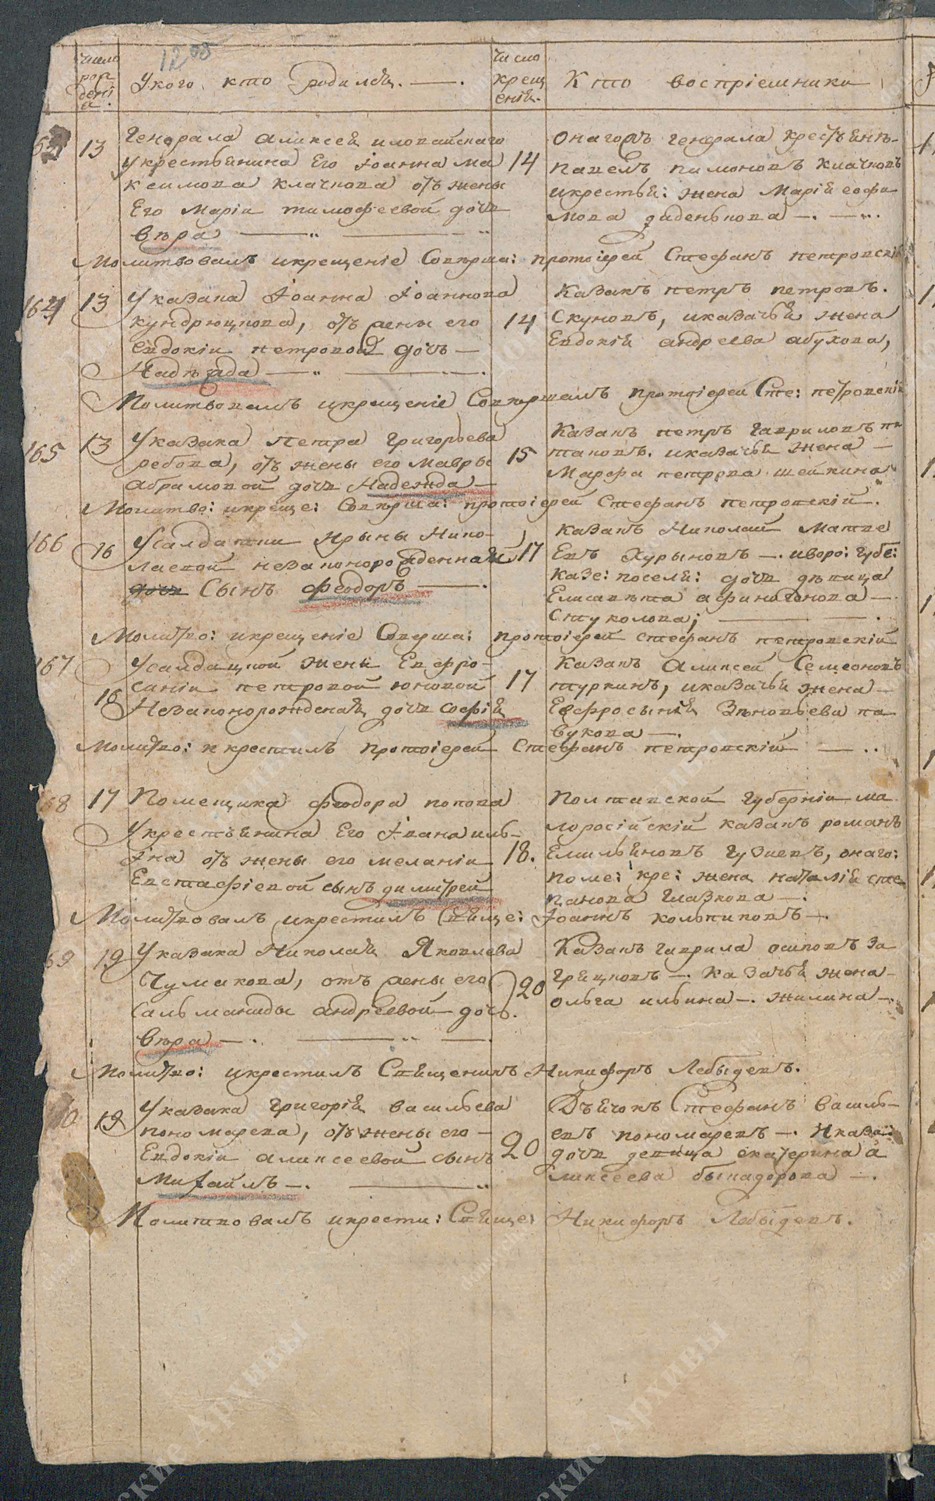 число рождения.
1205
У кого, кто Родился. —.
число крещений.
Кто воспріемники
163 13
Генерала Аликсея иловайскаго
укрестьянина Его Іоанна Ма
ксимова клачкова отъ жены
Его Маріи тимофеевой дочь
Вѣра
14
Онагожъ генерала крестьянъ
павелъ пимоновъ клачковъ
икрестья: жена Марія еофи
мова диденькова —.
Молитвовалъ икрещеніе Соверша: протоіерей Стефанъ петровскій
164 13
Указака Іоанна Іоаннова
кундрюцкова, отъ жены его
Евдокіи петровой дочь —
Надежда
14
Казакъ петръ петровъ.
Скуновъ, иказачья жена
Евдокія андреева абухова,
Молитвовалъ икрещеніе Совершалъ протоіерей Сте: петровскій
165 13
Указака Петра Григорьева
ребова, отъ жены его Мавры
абрамовой дочь Надежда —
15
Казакъ петръ гавриловъ
иказачья жена —
Марфа петрова шейкина
Молитво: икреще: Соверша: протоіерей Стефанъ петровскій.
166 16
Усалдатки Ирыны Нико-
лаевой незаконорожденный
дочь Сынъ феодоръ —
17
Казакъ Николай Матве
евъ Курыновъ — иворо: губе:
казе: поселя: дочь дѣвица
Елисавѣта афиногенова —
Стуколова;
Молитво: икрещеніе Соверша: протоіерей стефанъ петровскій
167 16
Усалдацкой жены Евфро-
синіи петровой юновой
Незаконорожденая дочь софія
17
Казакъ Аликсей Семеоновъ
туркинъ, иказачья жена —
Евфросынія Зѣновьева
букова —.
Молитво: и крестилъ протоіерей Стефанъ петровскій — ..
168 17
Помещика феодора попова
Укрестьянина Его Ивана иль-
ина отъ жены его меланіи
Евстафіевой сынъ димитрей
18.
Полтавской губерніи ма
лоросійскій казакъ романъ
Емильяновъ гузиевъ, онаго:
поме: кре: жена наталія сте
панова глазкова —.
Молитвовалъ икрестилъ Свяще: Іоаннъ колпиковъ —.
169 19
Указака Николая Яковлева
Чумакова, отъ жены его
Сальманиды андреевой — дочь.
Вѣра —.
20
Казакъ гаврила осиповъ За
грецковъ — казачья жена —
ольга ильина —. жилина —.
Молитво: икрестилъ Священикъ Никифоръ Лебедевъ.
170 19
Указака григорія васильева
пономарева, отъ жены его —
Евдокіи аликсеевой сынъ
Михаилъ —.
20
Дьячокъ Стефанъ василь-
евъ пономаревъ —. Иказа:
дочь девица екатерина а
ликсеева быкадорова —.
Молитвовалъ икрести: Свяще: Никифоръ Лебедевъ.